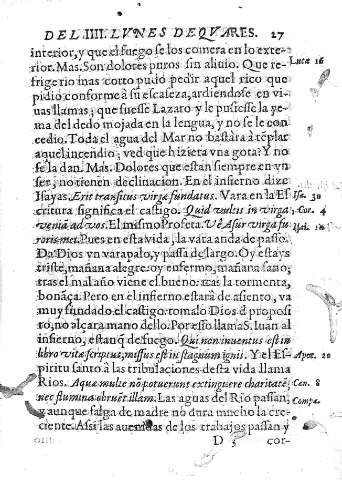 DEL IIII. LVNES DE QVARES. 27
interior, y que el fuego se los comera en lo exte-
rior. Mas. Son dolores puros sin aliuio. Que re-
frigerio mas corto pudo pedir aquel rico que Lucæ 16
pidio conforme à su escaseza, ardiendose en vi-
uas llamas; que fuesse Lazaro y le pusiesse la ye-
ma del dedo mojada en la lengua, y no se le con
cedio. Toda el agua del Mar no bastàra à tẽplar
aquel incendio; ved que hiziera vna gota? Y no
se la dan. Mas. Dolores que estan siempre en vn
ser, no tienen declinacion. En el infierno dize
Isayas. Erit transitus virgæ fundatus. Vara en la Es Isa. 30
critura significa el castigo. Quid vultis in virga 1. Cor. 4
veniã ad vos. El mismo Profeta. Væ Asur virga fu
roris mei. Pues en esta vida, la vara anda de passo.
Da Dios vn varapalo, y passa de largo. Oy estays
triste, mañana alegre: oy enfermo, mañana sano,
tras el mal año viene el bueno: tras la tormenta,
bonãça. Pero en el infierno estarà de asiento, va
muy fundado el castigo tomalo Dios d̃ proposi
to, no alçara mano dello. Por esso llama S. Iuan al
infierno, estanq̃ de fuego. Qui non inuentus est in
libro vitæ scriptus, missus est in stagnum ignis. Y el Es- Apoc. 20
piritu santo à las tribulaciones desta vida llama
Rios. Aquæ multæ nõ potuerunt extinguere charitatẽ, Can. 8
nec flumina obruẽt illam. Las aguas del Rio passan,
y aunque salga de madre no dura mucho la cre-
ciente. Assi las auenidas de los trabajos passan y
D 5 cor-